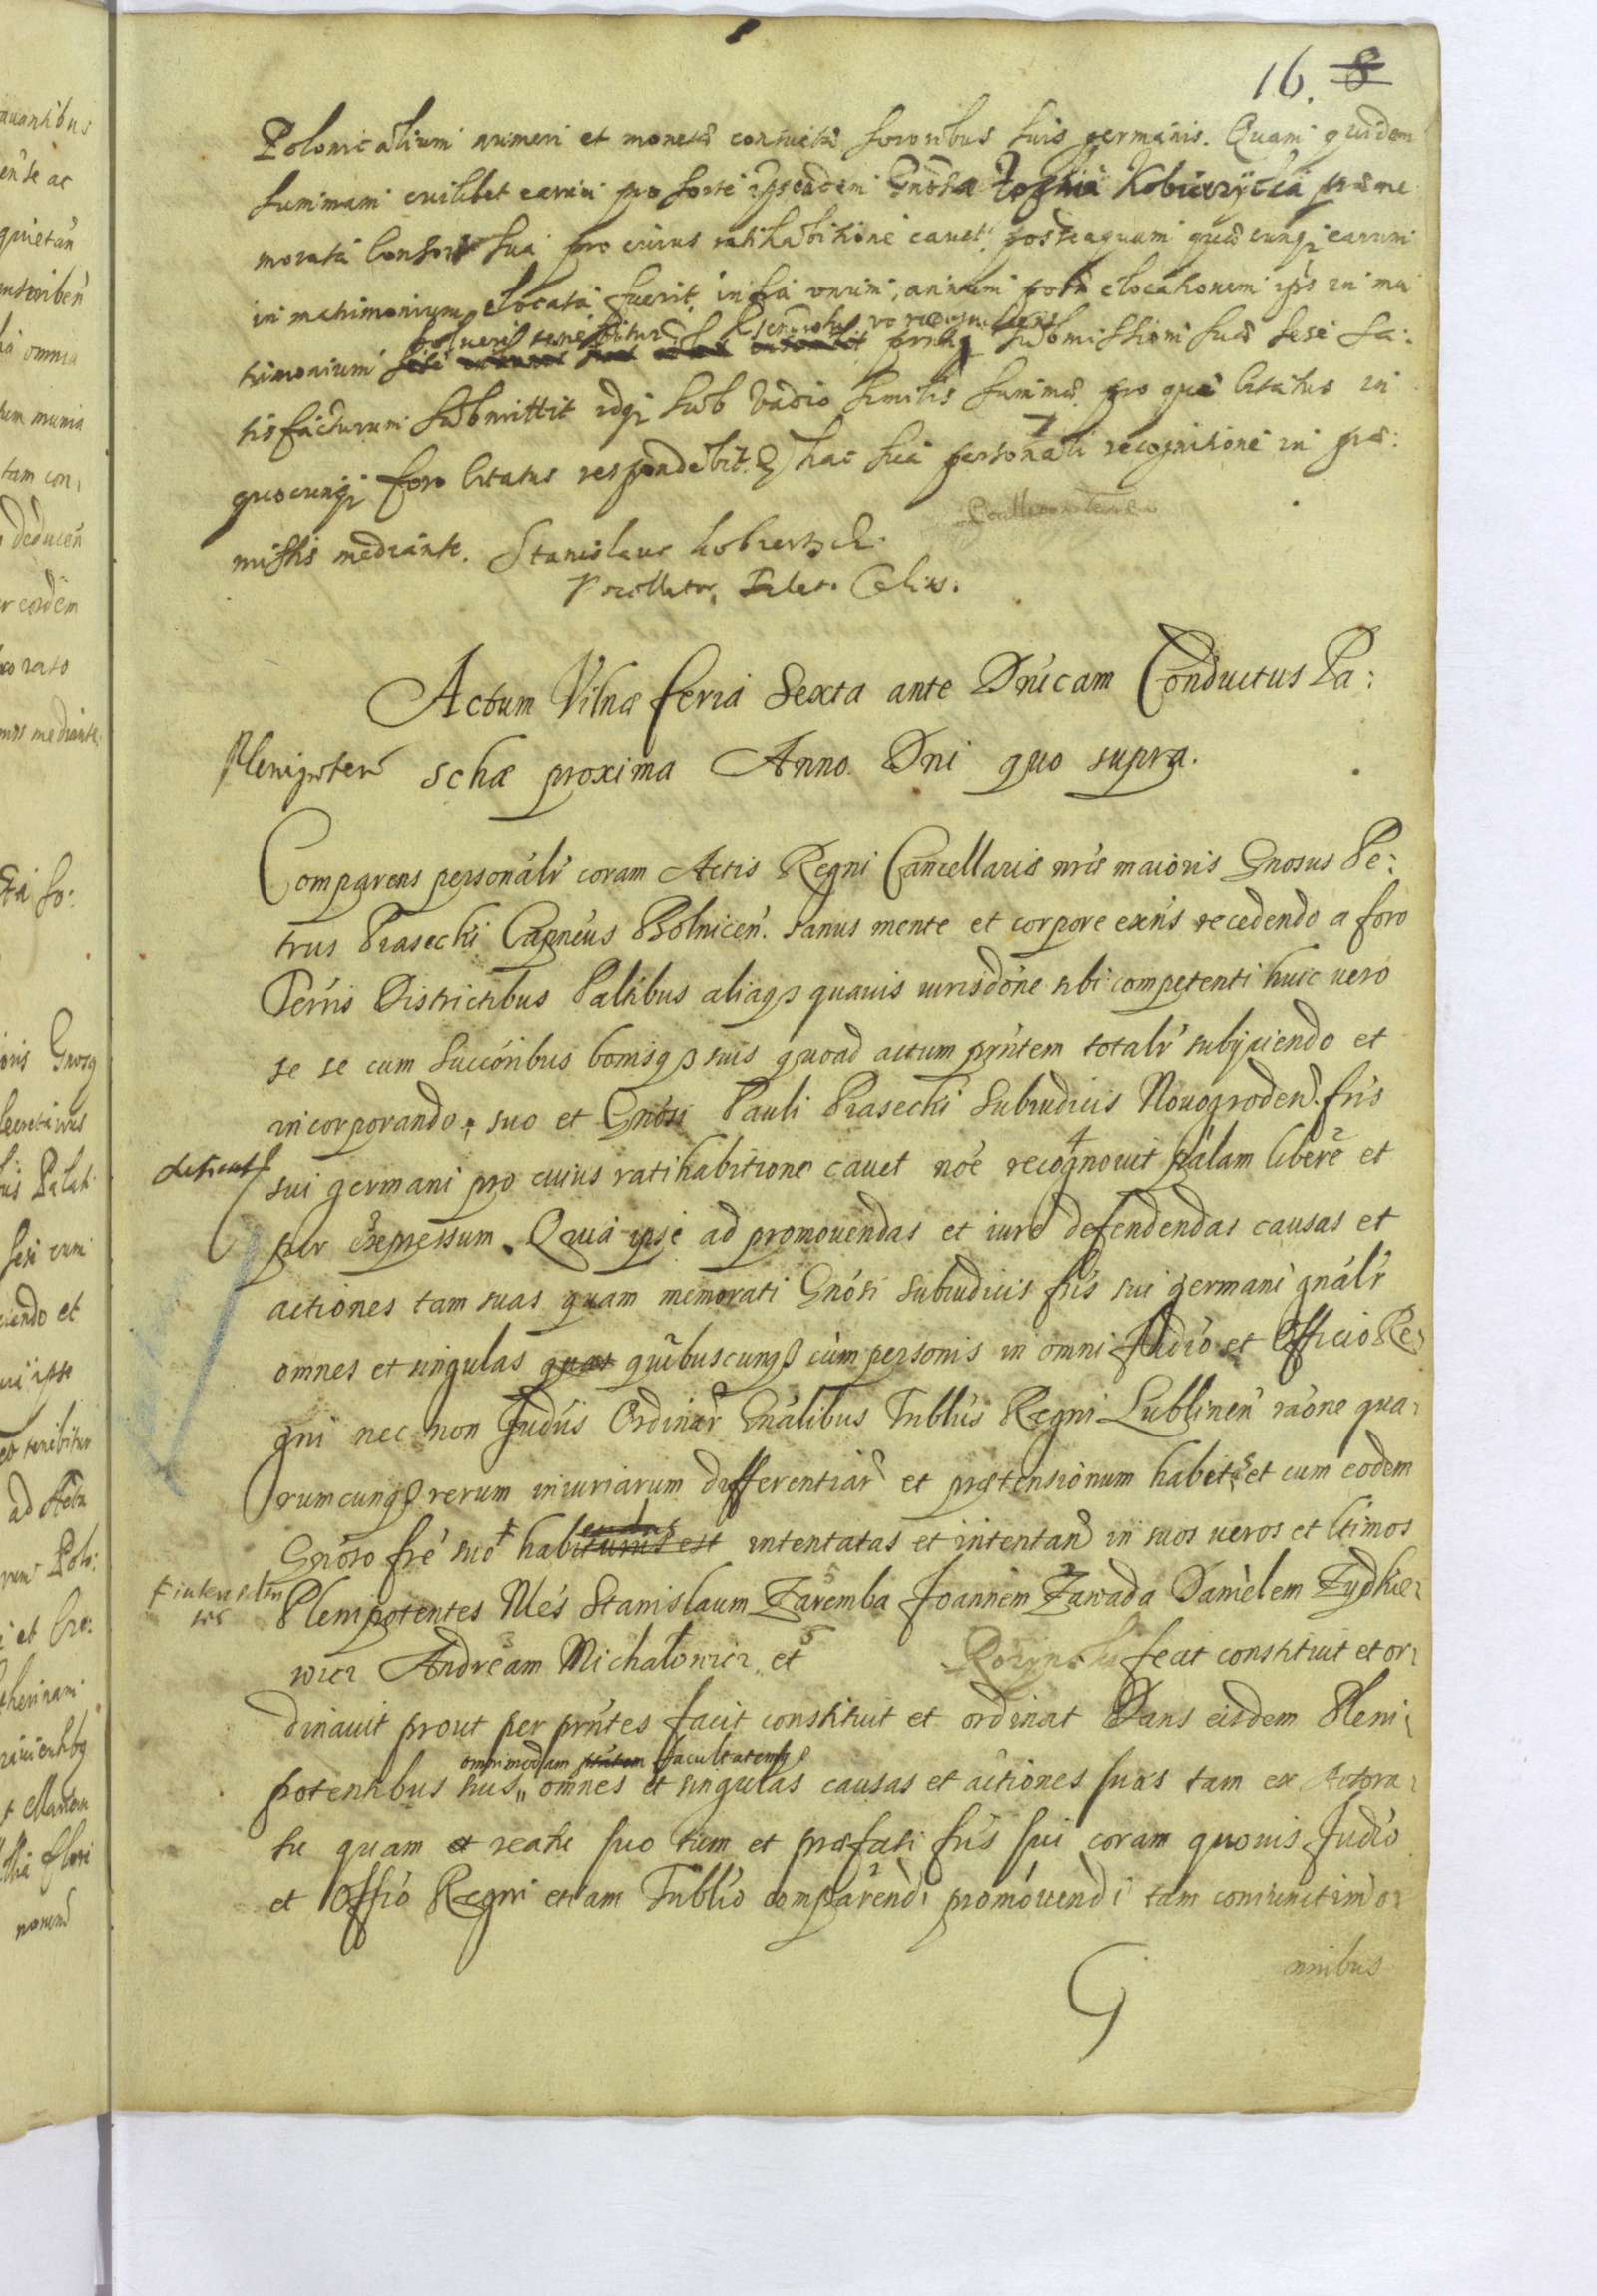 16. 8
Polonicalium numeri et monetæ consuetæ sororibus suis germanis. Quam quidem
summam cuilibet earum pro sorte ipseadem Gnosa Zophia Kobierzycka præme
morata Consors sua pro cuius ratihabitione cauet, posteaquam quæcunq earum
in matrimonium elocata fuerit, infra unum annum post elocationem ips in ma
soluere tenebitur
trimonium sese submissioni suæ sese sa:
tisfacturum submittit idq sub vadio similis summæ pro qua citatus in
quocunq foro citatus respondebit. hac sua personali recognitione in præ:
missis mediante. Stanislaus Kobierzick
Pocillator Palat. Calis.
Actum Vilnæ feria Sexta ante Dnicam Conductus Pa:
Plenipoten schæ proxima Anno Dni quo supra.
Comparens personalr coram Actis Regni Cancellariæ nræ maioris Gnosus Pe:
trus Piasecki Capneus sanus mente et corpore exns recedendo a foro
Terris Districtibus Paltibus aliaq quauis iurisdone sibi competenti huic uero
se se cum Succoribus bonisq suis quoad actum prntem totalr subijciendo et
incorporando, suo et Gnosi Pauli Piasecki Subiudicis Nouogroden. fris
sui germani pro cuius ratihabitione cauet noe recognouit palam libere et
per expressum. Quia ipse ad promouendas et iure defendendas causas et
actiones tam suas quam memorati Gnosi Subiudicis fris sui germani gnalr
omnes et singulas quas quibuscunq cum personis in omni Judio et Officio Re
gni nec non Judiis Ordinar Gnalibus Tribblus Regni Lublinen raone qua
rumcunq rerum iniuriarum differentiar et prætensionum habitas et cum eodem
Gnoso fre suo habiturus est intentatas et intentan in suos ueros et ltimos
Plenipotentes Nles Stanislaum Zaremba Joannem Zawada Danielem Zydkie
wicz Andream Michałowicz et fecit constituit et or
dinauit prout per prntes facit constituit et ordinat Dans eisdem Pleni
omnimodam facultatemq
potentibus suis omnes et singulas causas et actiones suas tam ex Actora
tu quam et reatu suo tum et præfati fris sui coram quouis Judio
et Offio Regni etiam Tribblio comparendi promouendi tam coniunctim o
mnibus
G